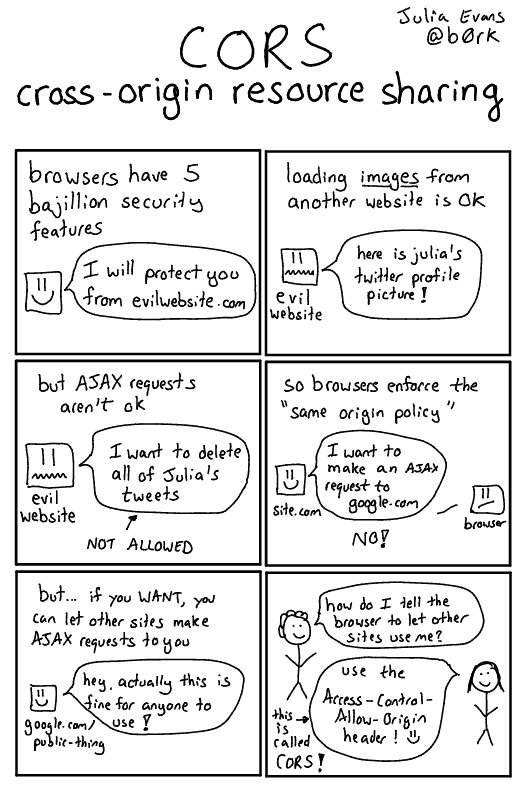 Julia Evans
@b0rk
CORS
cross-origin resource sharing
browsers have 5
bajillion security
features
I will protect you
from evilwebsite.com
loading images from
another website is OK
here is julia's
twitter profile
picture!
evil
website
but AJAX requests
aren't ok
I want to delete
all of Julia's
tweets
evil
website
NOT ALLOWED
so browsers enforce the
"same origin policy"
I want to
make an AJAX
request to
google.com
site.com
browser
NO!
but... if you WANT, you
can let other sites make
AJAX requests to you
hey, actually this is
fine for anyone to
use!
google.com/
public-thing
how do I tell the
browser to let other
sites use me?
use the
Access-Control-
Allow-Origin
header! :)
this →
is
called
CORS!